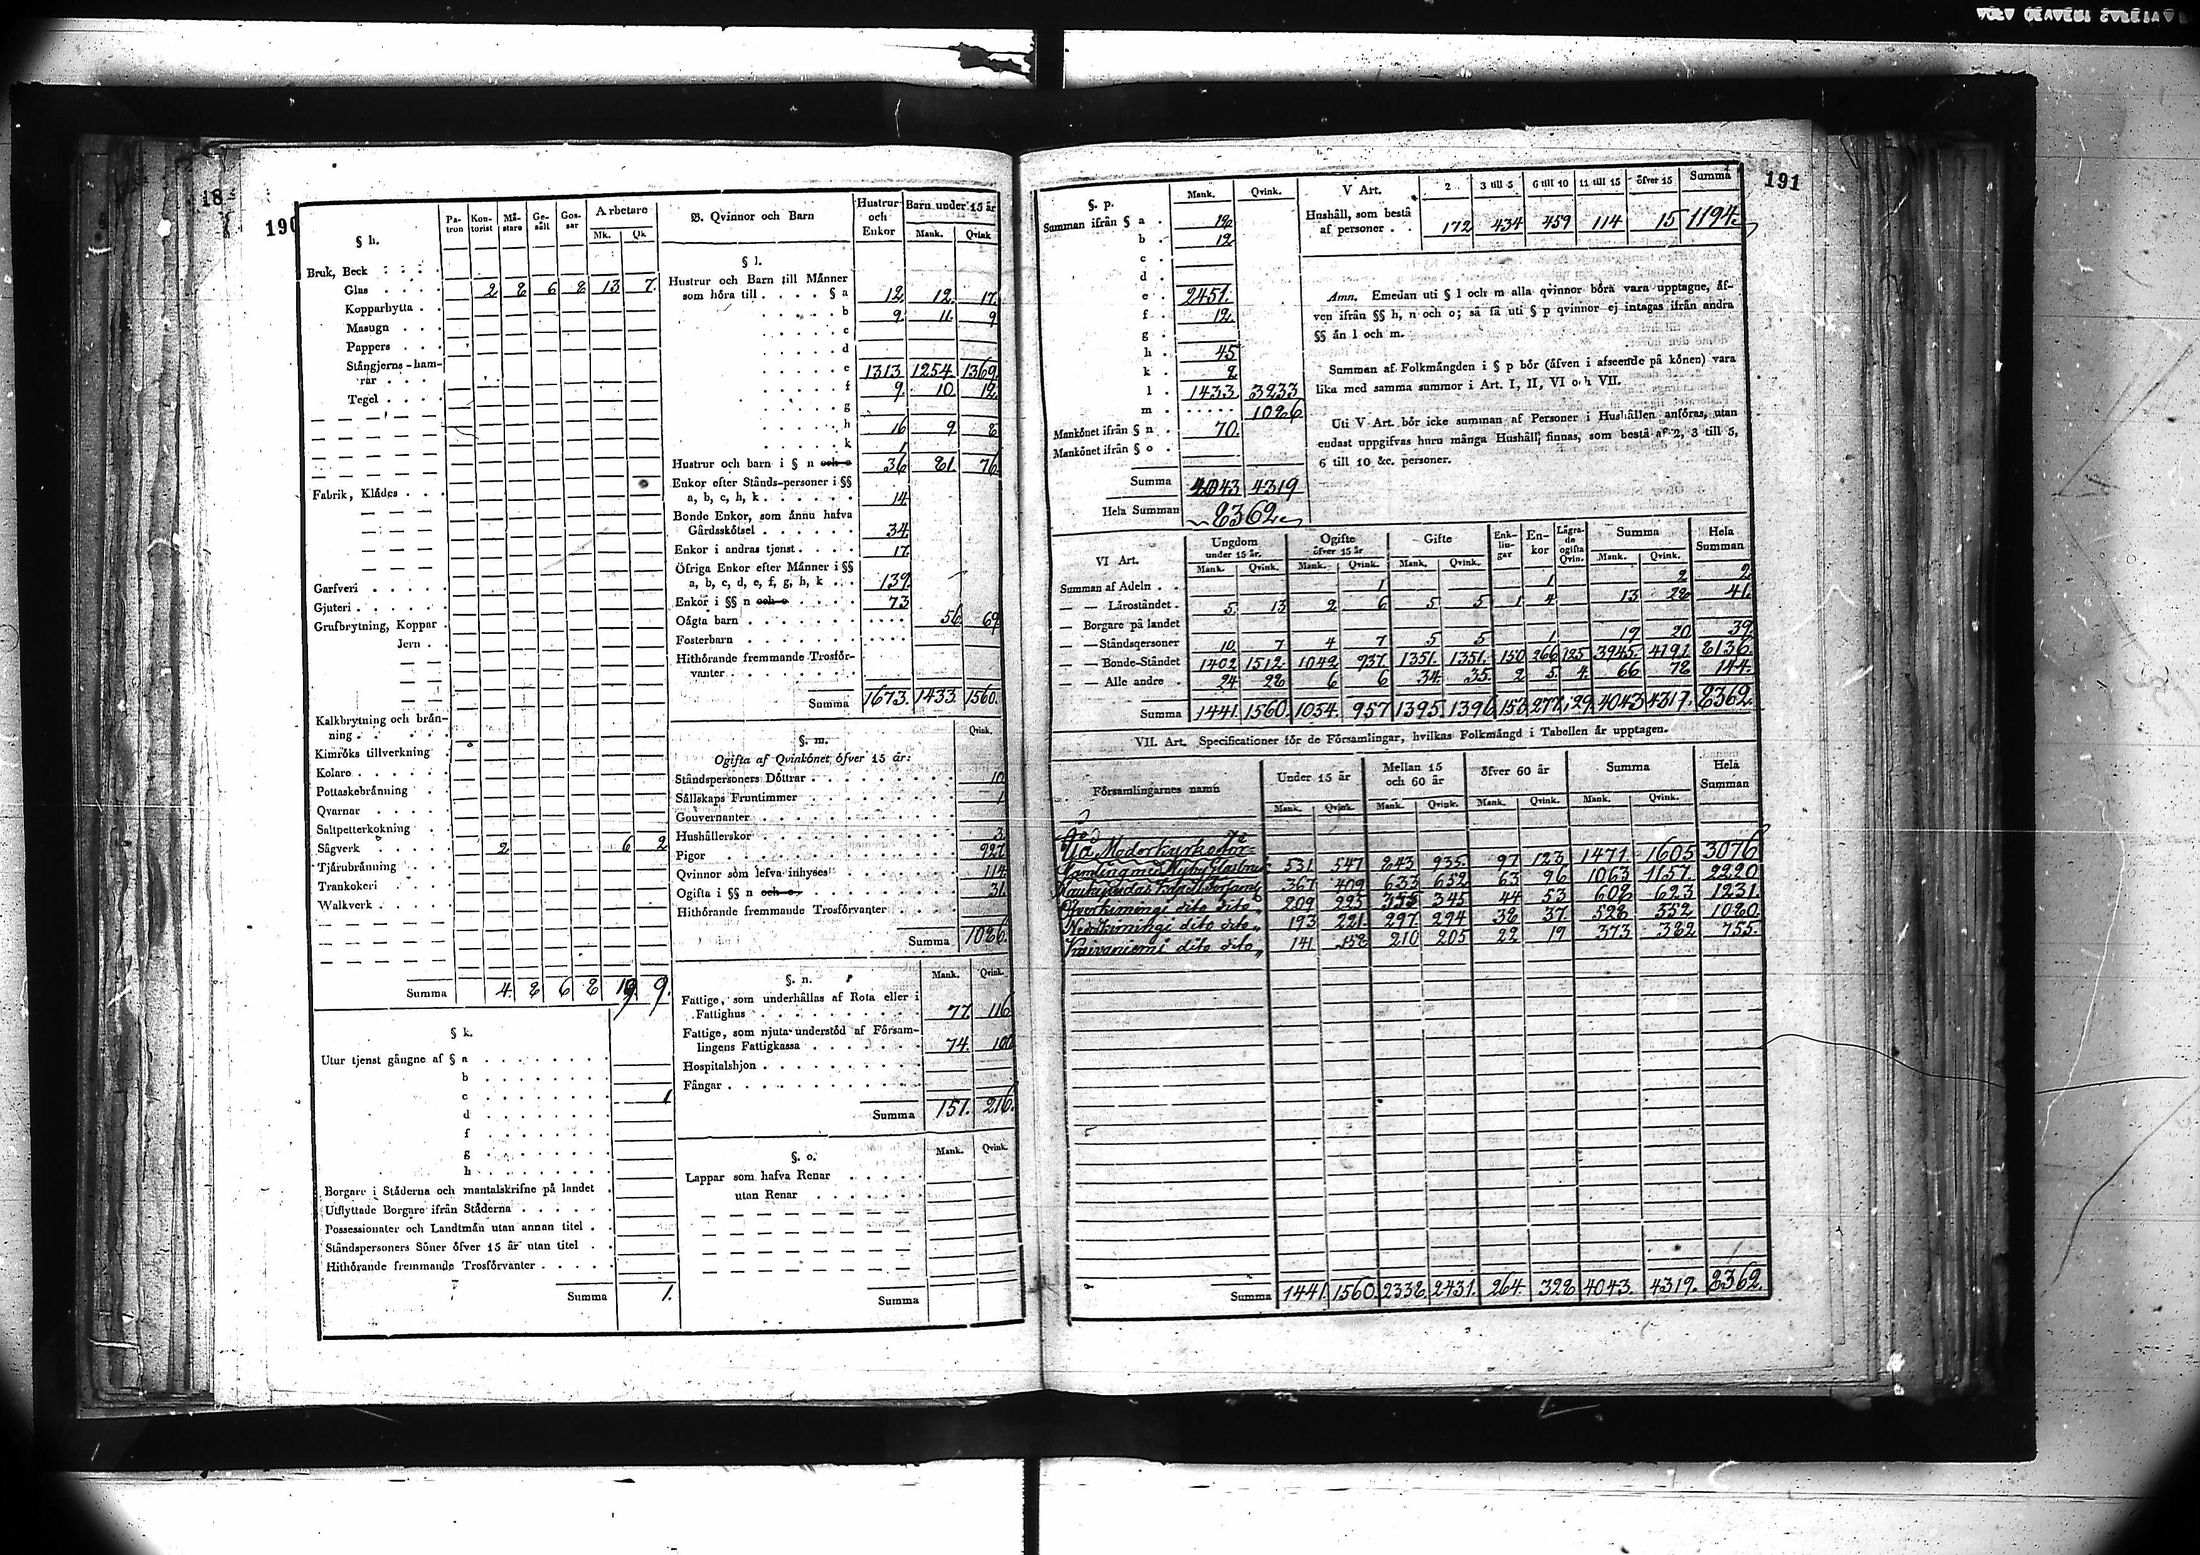 190
§ h.
Pa-tron Kon-torist Mä-stare Ge-säll Gos-sar Arbetare
Mk. Qk
Bruk, Beck
Glas 2 8 6 8 13 7.
Kopparhytta
Masugn
Pappers
Stångjerns-ham-
rar
Tegel
Fabrik, Klådes
Garfveri
Gjuteri
Grufbrytning, Koppar
Jern
Kalkbrytning och brän-
ning
Kimröks tillverkning
Kolare
Pottaskebränning
Qvarnar
Saltpetterkokning
Sågverk 2 6 2
Tjärubränning
Trankokeri
Walkverk
Summa 4. 8 6 8 19 9.
§ k.
Utur tjenst gångne af § a
b
c 1
d
f
g
h
Borgare i Städerna och mantalskrifne på landet
Utflyttade Borgare ifrån Städerna
Possessionater och Landtmän utan annan titel
Ståndspersoners Söner öfver 15 år utan titel
Hithörande fremmande Trosförvanter
Summa 1.
B. Qvinnor och Barn Hustrur och Enkor Barn under 15 år
Mank. Qvink
§ l.
Hustrur och Barn till Männer
som höra till § a 12 12. 17.
b 9. 11. 9
c
d
e 1313 1254 1369
f 9. 10 12
g
h 16 9. 8
k 1
Hustrur och barn i § n och o 36 81. 76
Enkor efter Stånds-personer i §§
a, b, c, h, k 14
Bonde Enkor, som ännu hafva
Gårdsskötsel 34.
Enkor i andras tjenst 17.
Öfriga Enkor efter Männer i §§
a, b, c, d, e, f, g, h, k 139.
Enkor i §§ n och o 73
Oägta barn 56. 69
Fosterbarn
Hithörande fremmande Trosför-
vanter
Summa 1673. 1433. 1560.
§. m. Qvink.
Ogifta af Qvinkönet öfver 15 år:
Ståndspersoners Döttrar 10
Sällskaps Fruntimmer 1
Gouvernanter
Hushållerskor 3
Pigor 927
Qvinnor som lefva inhyses 114
Ogifta i §§ n och o 31.
Hithörande fremmande Trosförvanter
Summa 1086.
§. n. Mank. Qvink.
Fattige, som underhållas af Rota eller i
Fattighus 77. 116
Fattige, som njuta understöd af Försam-
lingens Fattigkassa 74. 100
Hospitalshjon
Fångar
Summa 151. 216.
§. o. Mank. Qvink.
Lappar som hafva Renar
utan Renar
Summa
191
§. p. Mank. Qvink.
Summan ifrån § a 18
b 12
c
d
e 2451.
f 12
g
h 45
k 2
l 1433 3233
m 1086
Mankönet ifrån § n 70.
Mankönet ifrån § o
Summa 4043 4319
Hela Summan 8362
V Art. 2 3 till 5 6 till 10 11 till 15 öfver 15 Summa
Hushåll, som bestå
af personer 172 434 459 114 15 1194
Anm. Emedan uti § l och m alla qvinnor böra vara upptagne, äf-
ven ifrån §§ h, n och o; så få uti § p qvinnor ej intagas ifrån andra
§§ än l och m.
Summan af Folkmängden i § p bör (äfven i afseende på könen) vara
lika med samma summor i Art. I, II, VI och VII.
Uti V Art. bör icke summan af Personer i Hushållen anföras, utan
endast uppgifvas huru många Hushåll finnas, som bestå af 2, 3 till 5,
6 till 10 &c. personer.
VI Art. Ungdom under 15 år. Ogifte öfver 15 år Gifte Enk-lin-gar En-kor Lägra-de ogifta Qvin. Summa Hela Summan
Mank. Qvink. Mank. Qvink. Mank. Qvink. Mank. Qvink.
Summan af Adeln 1 1 2 2
— — Läroståndet 5. 13 2 6 5 5 1 4 13 28 41.
— Borgare på landet
— — Ståndspersoner 10 7 4 7 5 5 1 19 20 39.
— — Bonde-Ståndet 1402 1512 1042 937 1351. 1351. 150 266 125 3945. 4191. 8136.
— — Alle andre 24 28 6 6 34. 35. 2 5. 4. 66 78 144.
Summa 1441. 1560. 1054. 957 1395. 1396 153 277. 129. 4043 4319. 8362.
VII. Art. Specificationer för de Församlingar, hvilkas Folkmängd i Tabellen är upptagen.
Församlingarnes namn Under 15 år Mellan 15 och 60 år öfver 60 år Summa Hela Summan
Mank. Qvink. Mank. Qvink. Mank. Qvink. Mank. Qvink.
Ijo Moderkyrkoför=
samling med Kyby Glasbruk 531. 547 843 935 97 123 1471. 1605 3076
Haukipudas Kapell Församl 367 409 633 652 63 96 1063 1157. 2220
Öfverkiminge dito dito 209 225 355 345 44 53 608 623 1231.
Nedkiminge dito dito 193 221. 297 294 38 37 528 552 1080.
Kuivaniemi dito dito 141 158 210 205 22 19 373 382 755.
Summa 1441. 1560. 2338. 2431. 264. 328 4043. 4319. 8362.